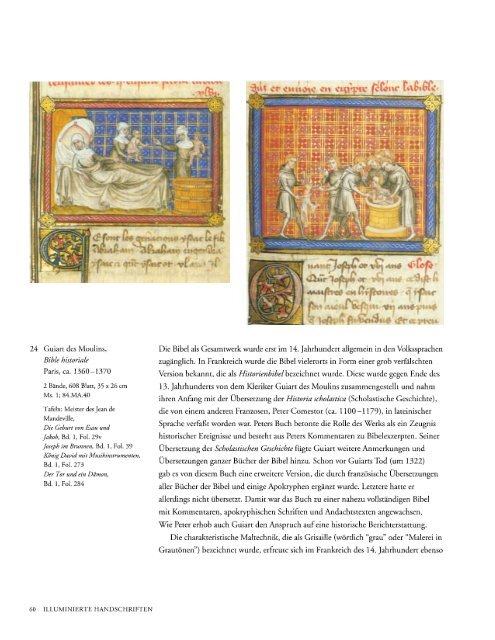 .xlv.
Cut et enuoie en egypte selonc la bible.
E sont les generacions ysaac le filz
Abraham. Abraham engendra
ysaac
Quant Joseph ot .xvj. ans Glose.
24 Guiart des Moulins,
Bible historiale
Paris, ca. 1360–1370
2 Bände, 608 Blatt, 35 x 26 cm
Ms. 1; 84.MA.40
Tafeln: Meister des Jean de
Mandeville,
Die Geburt von Esau und
Jakob, Bd. 1, Fol. 29v
Joseph im Brunnen, Bd. 1, Fol. 39
König David mit Musikinstrumenten,
Bd. 1, Fol. 273
Der Tor und ein Dämon,
Bd. 1, Fol. 284
Die Bibel als Gesamtwerk wurde erst im 14. Jahrhundert allgemein in den Volkssprachen
zugänglich. In Frankreich wurde die Bibel vielerorts in Form einer grob verfälschten
Version bekannt, die als Historienbibel bezeichnet wurde. Diese wurde gegen Ende des
13. Jahrhunderts von dem Kleriker Guiart des Moulins zusammengestellt und nahm
ihren Anfang mit der Übersetzung der Historia scholastica (Scholastische Geschichte),
die von einem anderen Franzosen, Peter Comestor (ca. 1100–1179), in lateinischer
Sprache verfaßt worden war. Peters Buch betonte die Rolle des Werks als ein Zeugnis
historischer Ereignisse und besteht aus Peters Kommentaren zu Bibelexzerpten. Seiner
Übersetzung der Scholastischen Geschichte fügte Guiart weitere Anmerkungen und
Übersetzungen ganzer Bücher der Bibel hinzu. Schon vor Guiarts Tod (um 1322)
gab es von diesem Buch eine erweitere Version, die durch französische Übersetzungen
aller Bücher der Bibel und einige Apokryphen ergänzt wurde. Letztere hatte er
allerdings nicht übersetzt. Damit war das Buch zu einer nahezu vollständigen Bibel
mit Kommentaren, apokryphischen Schriften und Andachtstexten angewachsen.
Wie Peter erhob auch Guiart den Anspruch auf eine historische Berichterstattung.
Die charakteristische Maltechnik, die als Grisaille (wörtlich "grau" oder "Malerei in
Grautönen") bezeichnet wurde, erfreute sich im Frankreich des 14. Jahrhundert ebenso
60 ILLUMINIERTE HANDSCHRIFTEN